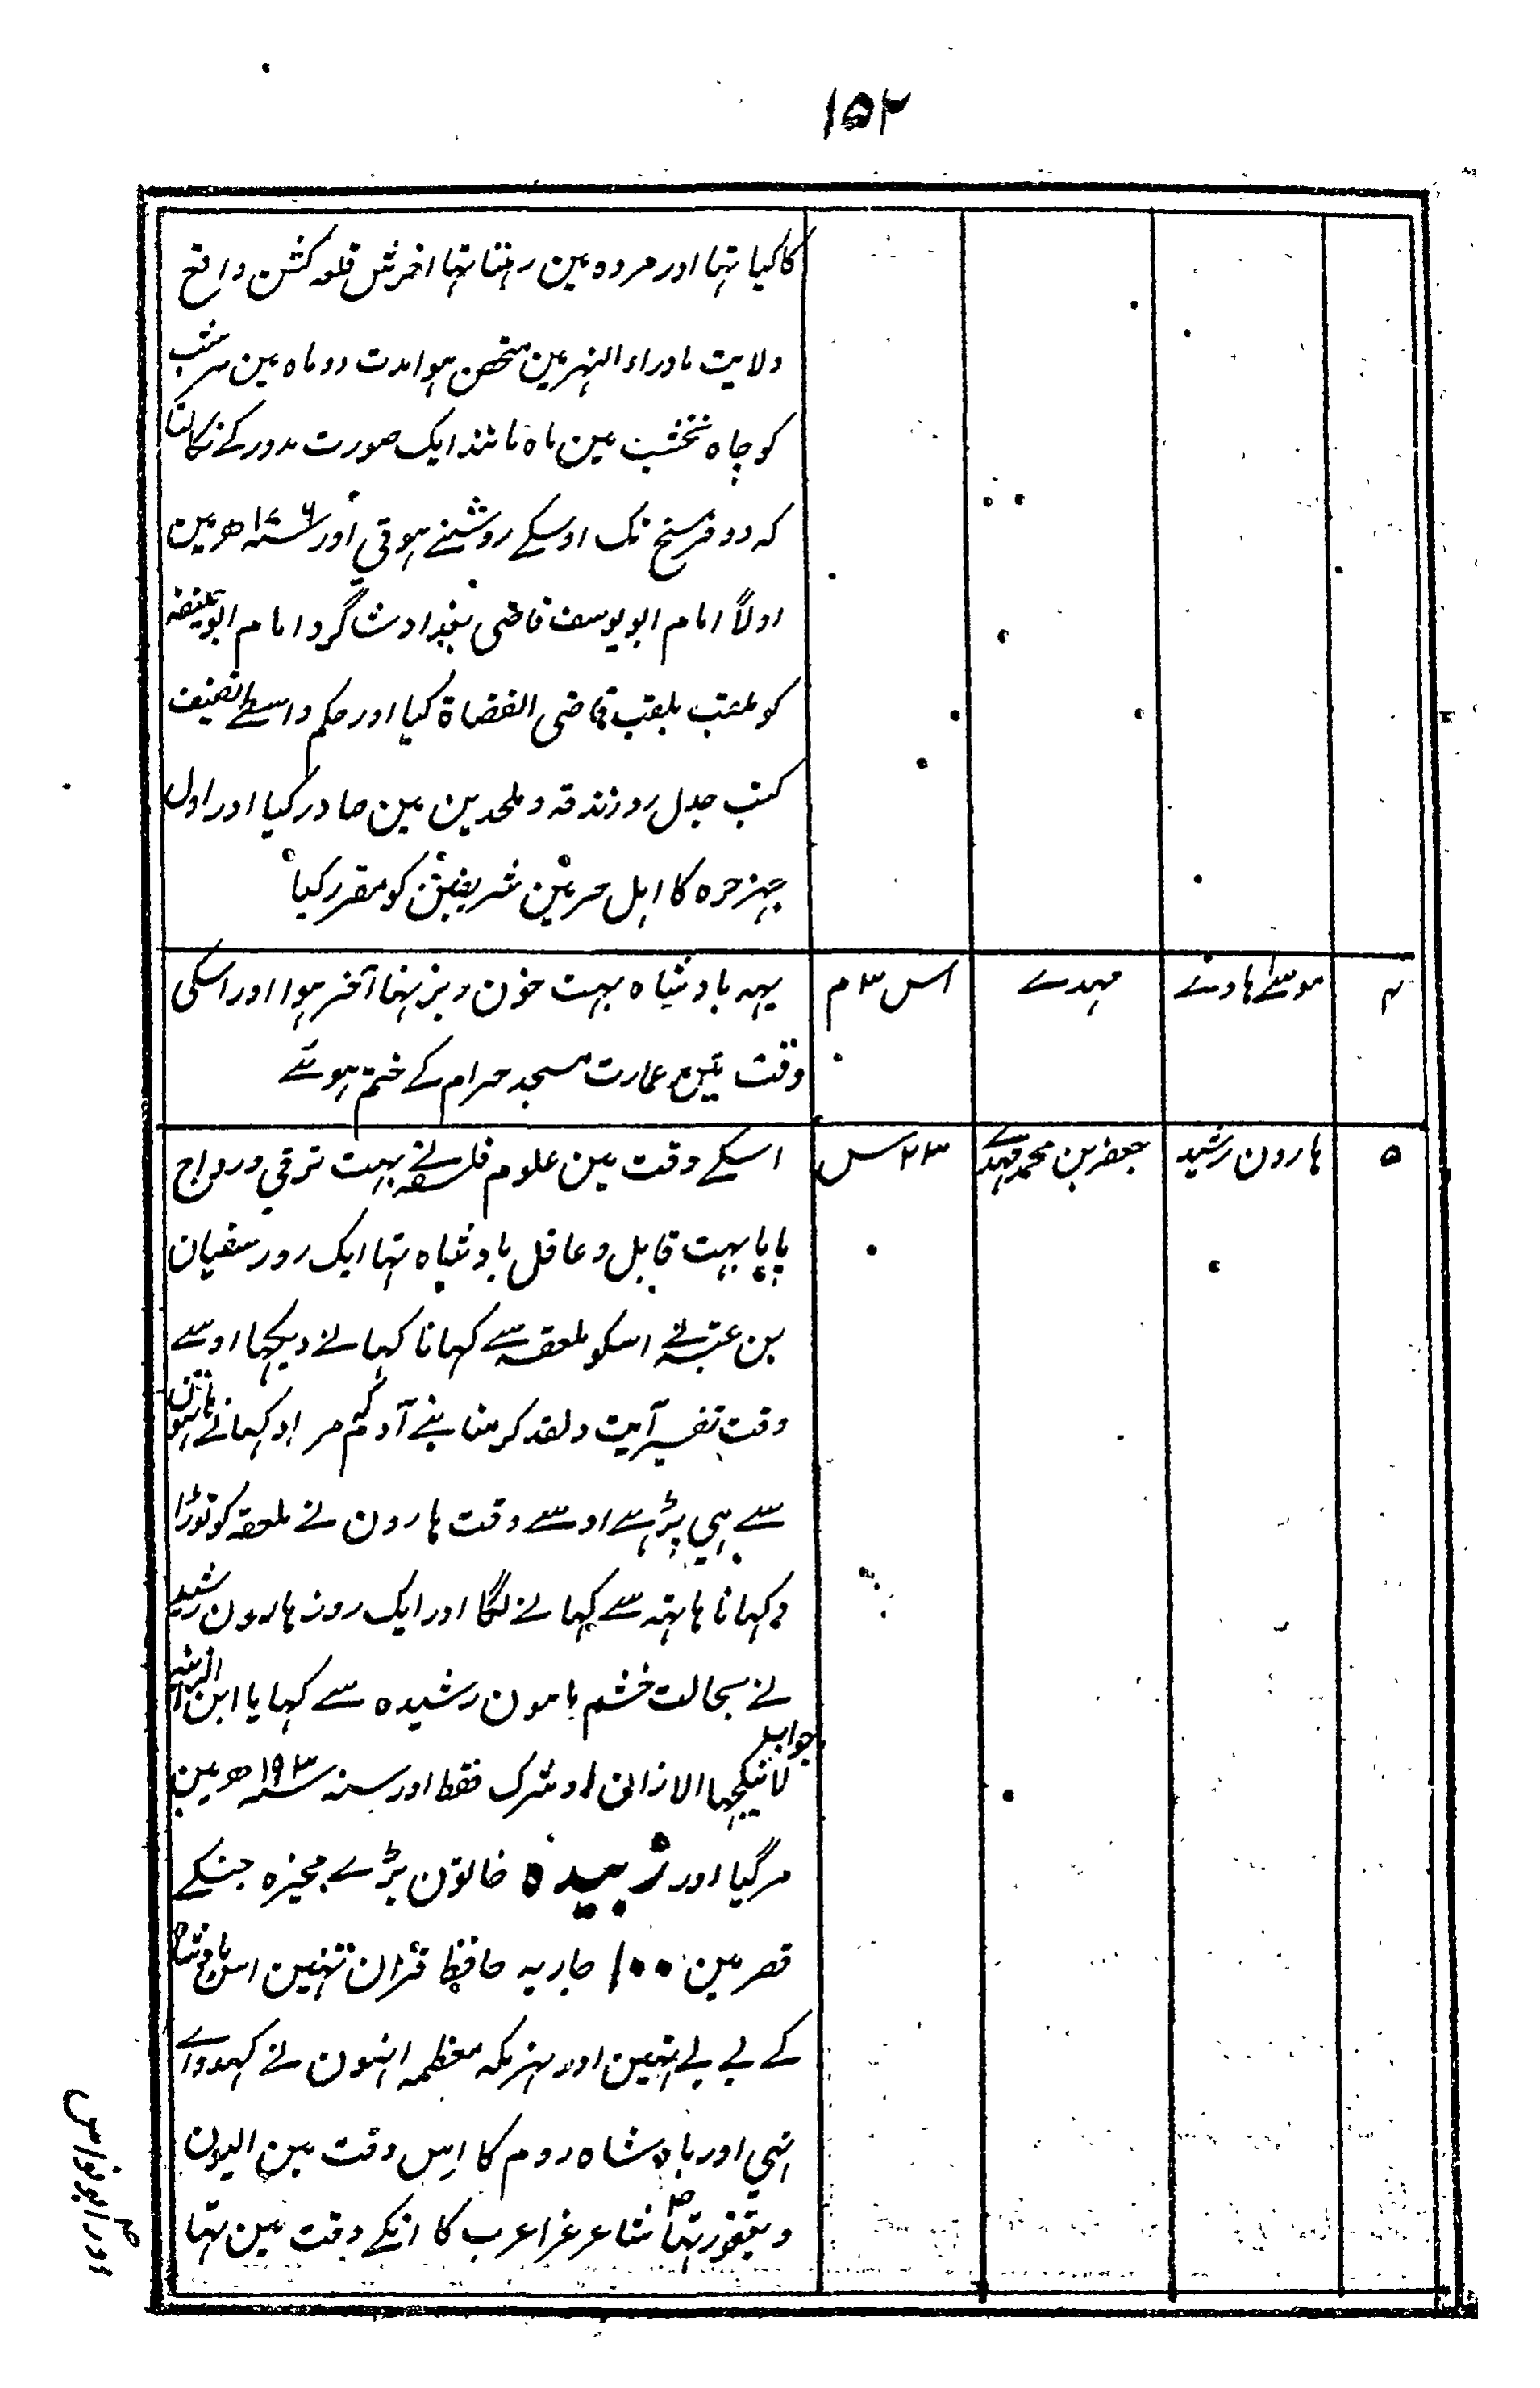 ۱۵۲
کا کیا تہا اور مروہ مین رہتا تہا اخرش قلعہ کشن واقع
ولایت ماوراء النہر مین متحصن ہوا مدت دو ماہ مین ہر شب
کو چاہ نخشب مین ماہ مانند ایک صورت مدور کے نکالتا
کہ دو فرسخ تک اوسکے روشنے ہوتی اور سنہ ۱۶۶ھ مین
اولاً امام ابو یوسف قاضی بغداد شاگرد امام ابو حنیفہ
کو ملقب بلقب قاضی القضاۃ کیا اور حکم واسطے تصنیف
کتب جدل رد زندقہ و ملحدین مین صادر کیا اور اول
جہز حرہ کا اہل حرمین شریفین کو مقرر کیا
۴ موسے ہادے مہدے اس ۳م یہہ بادشاہ بہت خون ریز تہا آخر ہوا اور اسکی
وقت مین عمارت مسجد حرام کے ختم ہوئے
۵ ہارون رشید جعفر بن محمد مہدے ۲۳س اسکے وقت مین علوم فلسفہ نے بہت ترقی و رواج
پایا بہت قابل و عاقل بادشاہ تہا ایک روز سفیان
بن عتبہ نے اسکو ملعقہ سے کہانا کہاتے دیکہا اوسے
وقت تفسیر آیت ولقد کرمنا بنے آدم کہ مراد کہانے ہاتہون
سے ہی پڑہے اوسے وقت ہارون نے ملعقہ کو توڑا
و کہانا ہاتہہ سے کہانے لگا اور ایک روز ہارون رشید
نے بحالت خشم مامون رشیدہ سے کہا یا ابن الزانیہ
جوابد
لا ینکحہا الا زان او مشرک فقط اور سنہ ۱۹۳ھ مین
مرگیا اور زبیدہ خاتون بڑے مخیرہ جنکے
قصر مین ۱۰۰ جاریہ حافظ قران تہین اس بادشاہ
کے بے بے تہین اور نہر مکہ معظمہ انہون نے کہدوائے
تہی اور بادشاہ روم کا اس وقت مین الیون
و یقفور تہا شاعر غرا عرب کا انکے وقت مین تہا
اور ابو نواس